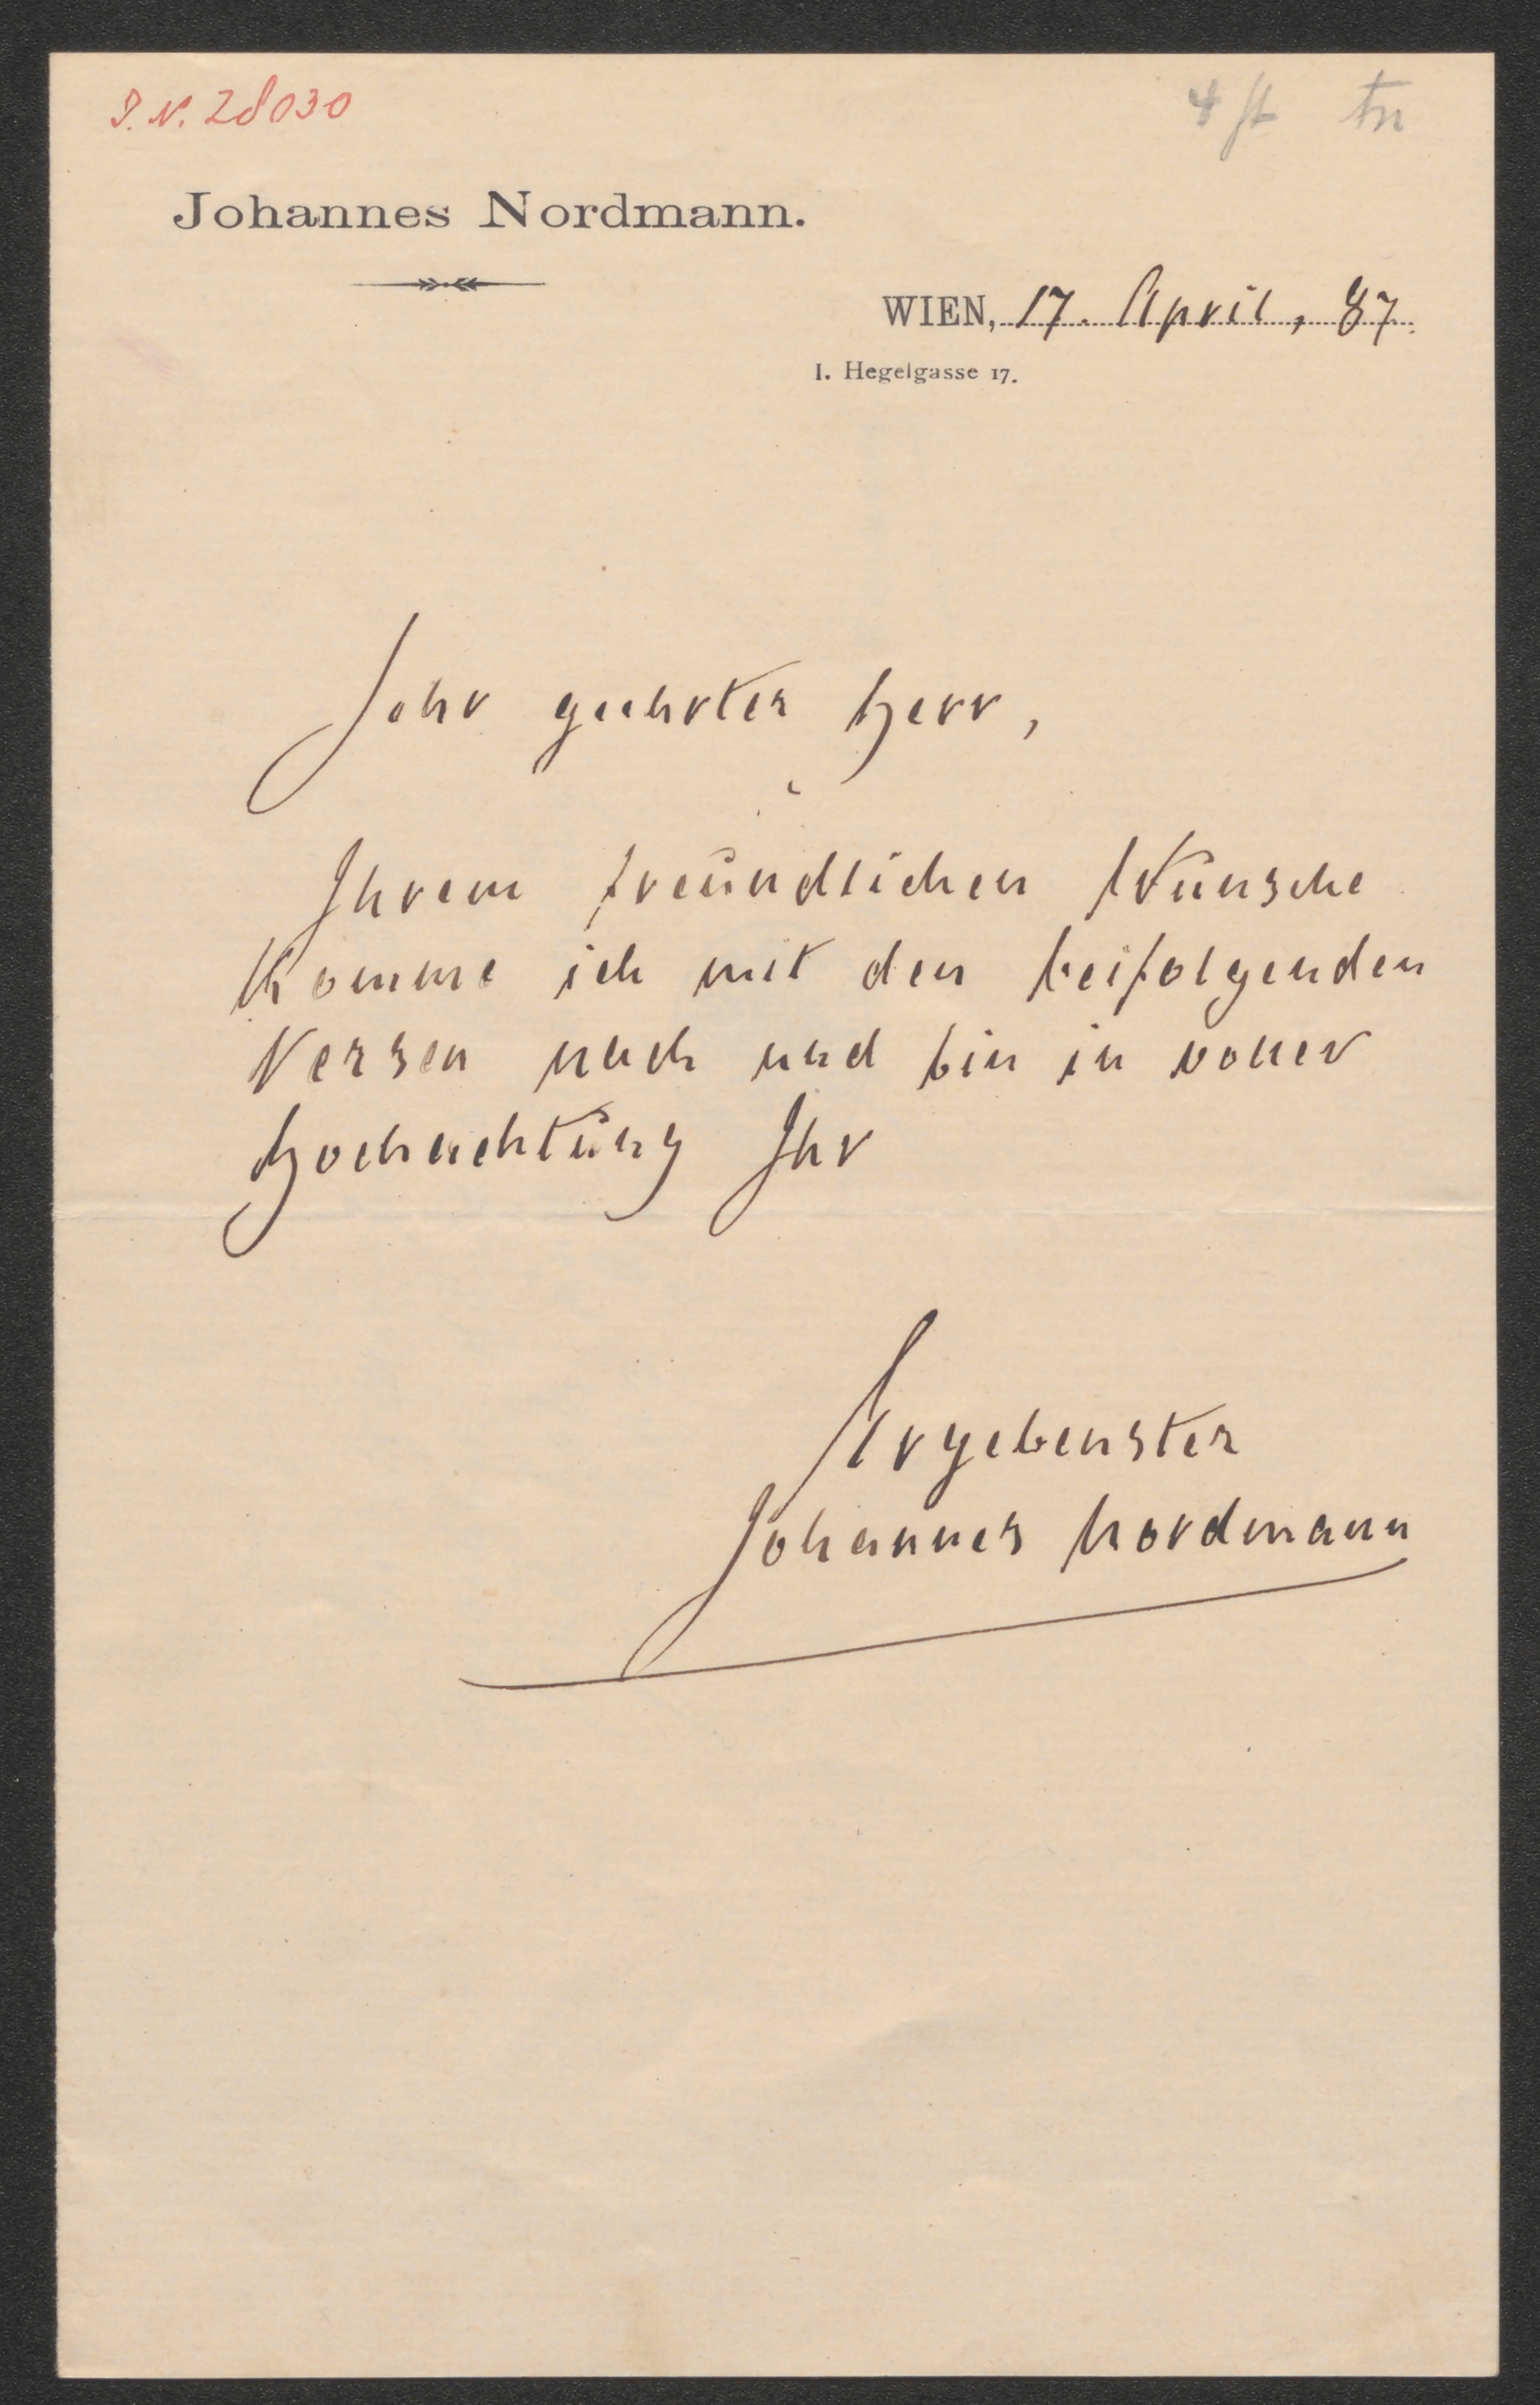 J.N. 28030
Johannes Nordmann.
WIEN, 17. April, 87.
I. Hegelgasse 17.
Sehr geehrter Herr,
Ihrem freundlichen Wunsche
komme ich mit den beifolgenden
Versen nach und bin in voller
Hochachtung Ihr
Ergebenster
Johannes Nordmann